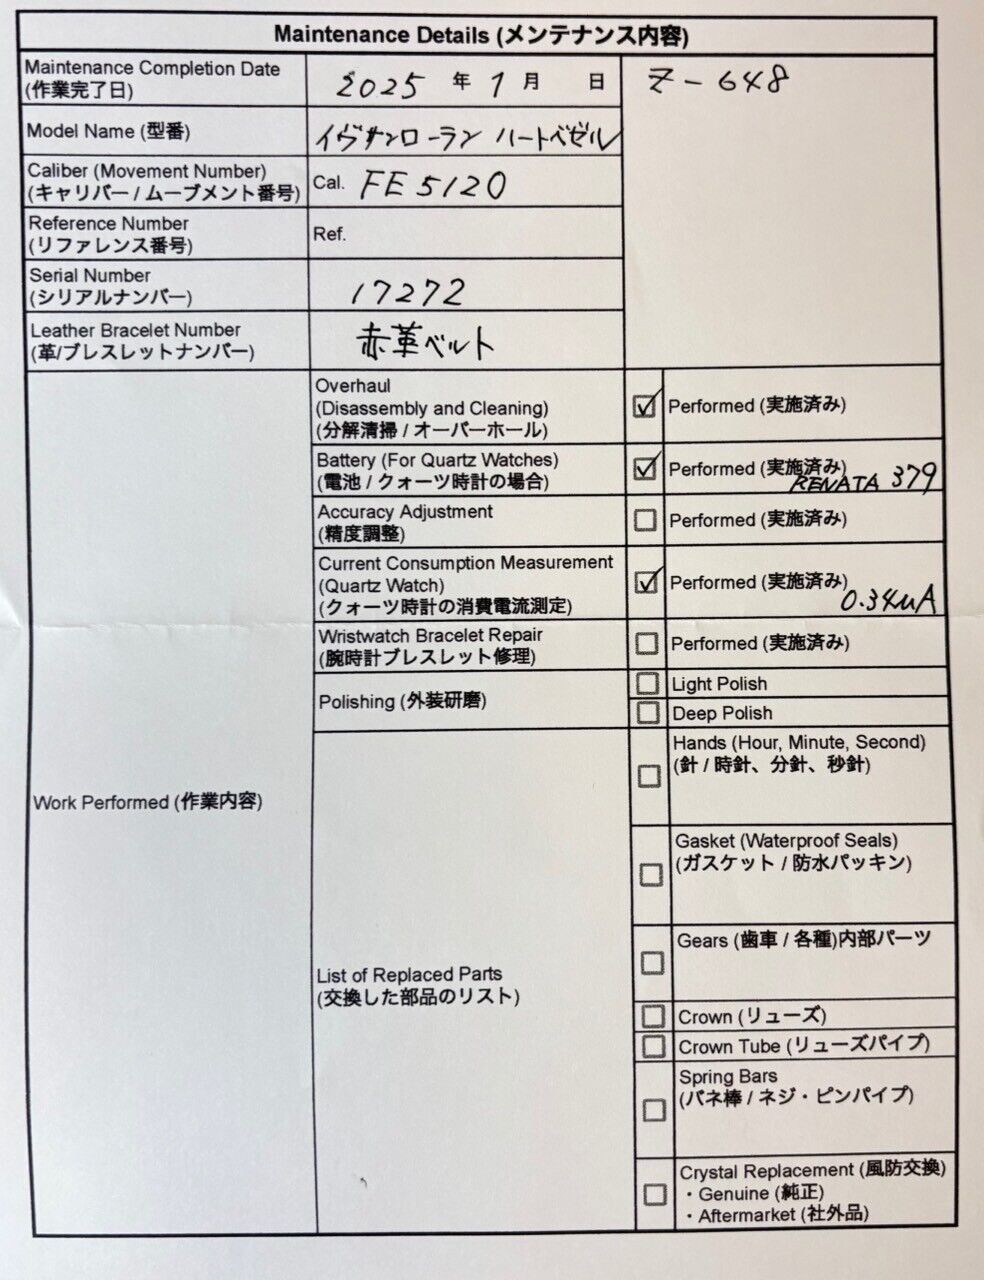 Maintenance Details (メンテナンス内容)
Maintenance Completion Date
(作業完了日)
2025 年 1 月 日
Z-648
Model Name (型番)
イヴサンローラン ハートベゼル
Caliber (Movement Number)
(キャリバー / ムーブメント番号)
Cal. FE 5120
Reference Number
(リファレンス番号)
Ref.
Serial Number
(シリアルナンバー)
17272
Leather Bracelet Number
(革/ブレスレットナンバー)
赤革ベルト
Work Performed (作業内容)
Overhaul
(Disassembly and Cleaning)
(分解清掃 / オーバーホール)
Performed (実施済み)
Battery (For Quartz Watches)
(電池 / クォーツ時計の場合)
Performed (実施済み)
RENATA 379
Accuracy Adjustment
(精度調整)
Performed (実施済み)
Current Consumption Measurement
(Quartz Watch)
(クォーツ時計の消費電流測定)
Performed (実施済み)
0.34μA
Wristwatch Bracelet Repair
(腕時計ブレスレット修理)
Performed (実施済み)
Polishing (外装研磨)
Light Polish
Deep Polish
List of Replaced Parts
(交換した部品のリスト)
Hands (Hour, Minute, Second)
(針 / 時針、分針、秒針)
Gasket (Waterproof Seals)
(ガスケット / 防水パッキン)
Gears (歯車 / 各種)内部パーツ
Crown (リューズ)
Crown Tube (リューズパイプ)
Spring Bars
(バネ棒 / ネジ・ピンパイプ)
Crystal Replacement (風防交換)
・Genuine (純正)
・Aftermarket (社外品)